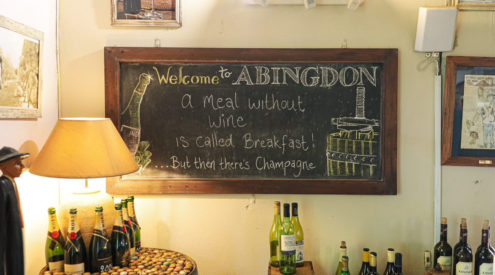 Welcome to ABINGDON
a MeaL without
wine
is called Breakfast!
...But then there's Champagne